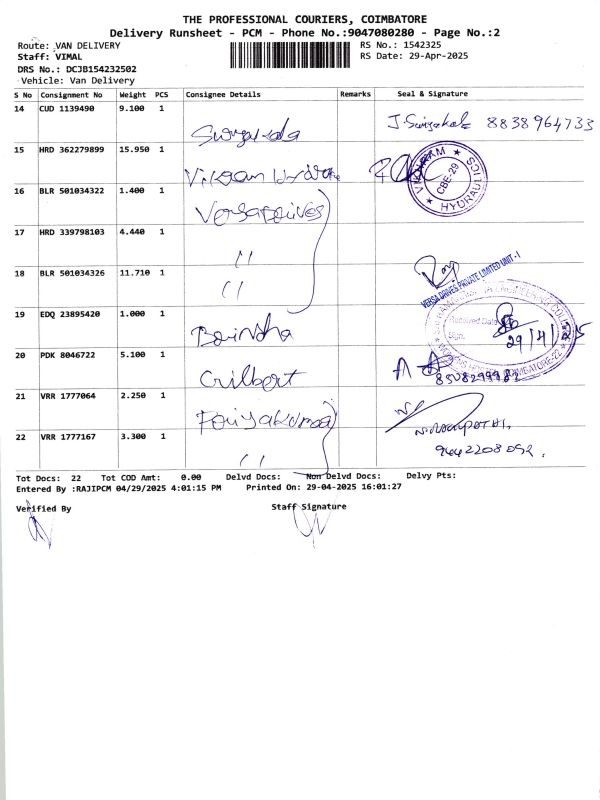 THE PROFESSIONAL COURIERS, COIMBATORE
Delivery Runsheet - PCM - Phone No.:9047080280 - Page No.:2
Route: VAN DELIVERY
RS No.: 1542325
Staff: VIMAL
RS Date: 29-Apr-2025
DRS No.: DCJB154232502
Vehicle: Van Delivery
S No Consignment No Weight PCS Consignee Details Remarks Seal & Signature
14 CUD 1139490 9.100 1 J. 8838964733
15 HRD 362279899 15.950 1 Vikram
HYDRAULICS CBE-29
16 BLR 501034322 1.400 1 Versadrives
17 HRD 339798103 4.440 1 "
18 BLR 501034326 11.710 1 "
VERSA DRIVES PRIVATE LIMITED UNIT-1
19 EDQ 23895420 1.000 1
Received Date
Sign.
29/4/2025
20 PDK 8046722 5.100 1 Gilbert
21 VRR 1777064 2.250 1
22 VRR 1777167 3.300 1 "
9442208092.
Tot Docs: 22 Tot COD Amt: 0.00 Delvd Docs: Non Delvd Docs: Delvy Pts:
Entered By :RAJIPCM 04/29/2025 4:01:15 PM Printed On: 29-04-2025 16:01:27
Verified By Staff Signature